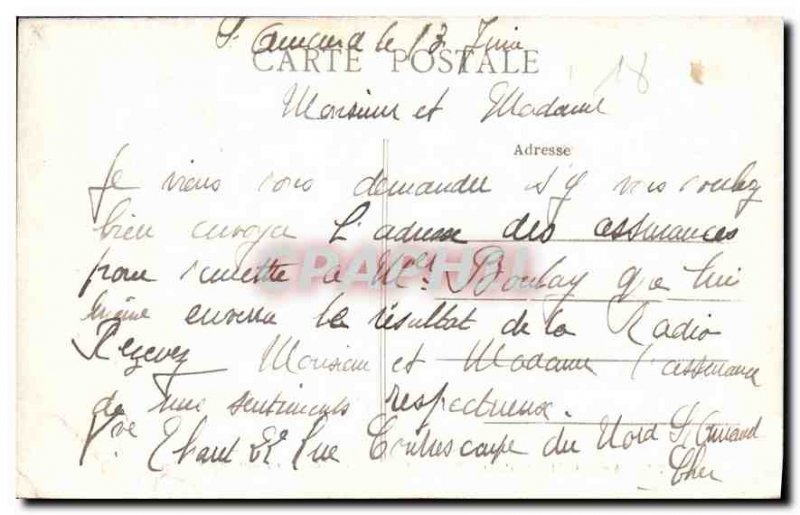 St Amand le 13 Juin
CARTE POSTALE
18
Monsieur et Madame
Adresse
Je viens vous demander s'y vous voulez
bien envoye L'adresse des assurances
pour remettre a Mr Boulay que lui
même enverra le résultat de la Radio
Recevez Monsieur et Madame l'assurance
de mes sentiments respectueux.
Vve Rue Contrescarpe du Nord St Amand
Cher